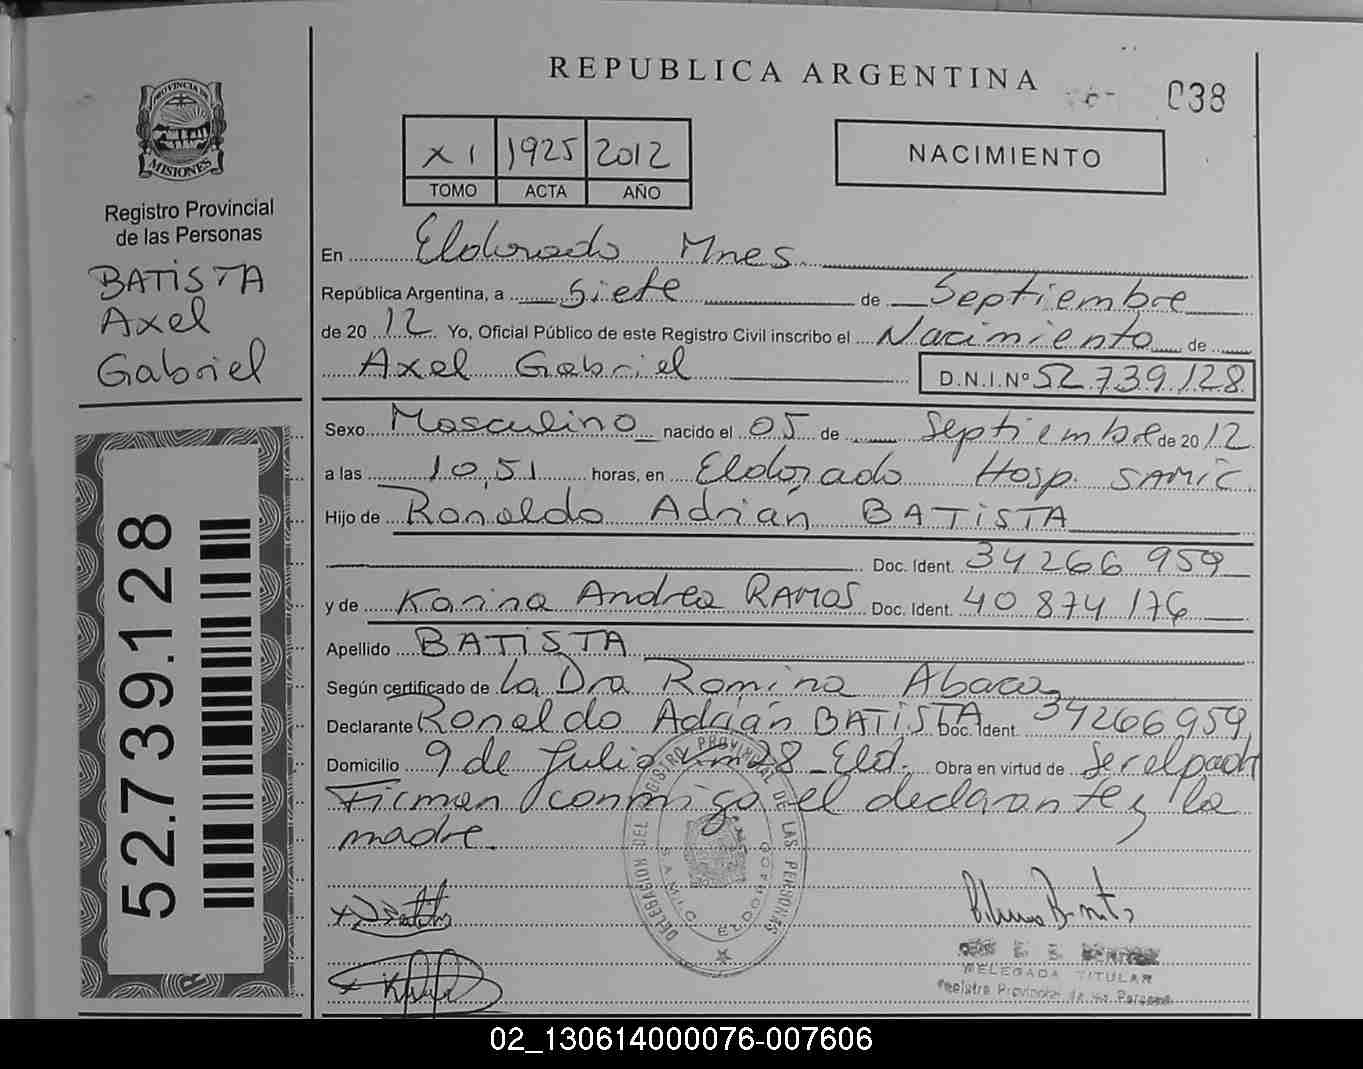 REPUBLICA ARGENTINA
038
PROVINCIA DE
MISIONES
Registro Provincial
de las Personas
BATISTA
Axel
Gabriel
52.739.128
XI 1925 2012
TOMO ACTA AÑO
NACIMIENTO
En Eldorado Mnes
República Argentina, a siete de Septiembre
de 2012 Yo, Oficial Público de este Registro Civil inscribo el Nacimiento de
Axel Gabriel D.N.I.Nº 52.739.128
Sexo Masculino nacido el 05 de Septiembre de 2012
a las 10,51 horas, en Eldorado Hosp. SAMIC
Hijo de Ronaldo Adrián BATISTA
Doc. Ident. 34266959
y de Karina Andrea RAMOS Doc. Ident. 40874176
Apellido BATISTA
Según certificado de La Dra Romina Abaca
Declarante Ronaldo Adrián BATISTA Doc. Ident. 34266959
Domicilio 9 de Julio km 28 Eld. Obra en virtud de Ser el padre
Firman conmigo el declarante y la
madre.
DELEGACION DEL REGISTRO PROVINCIAL DE LAS PERSONAS
S.A.M.I.C. ELDORADO
DELEGADA TITULAR
Registro Provincial de las Personas
02_130614000076-007606